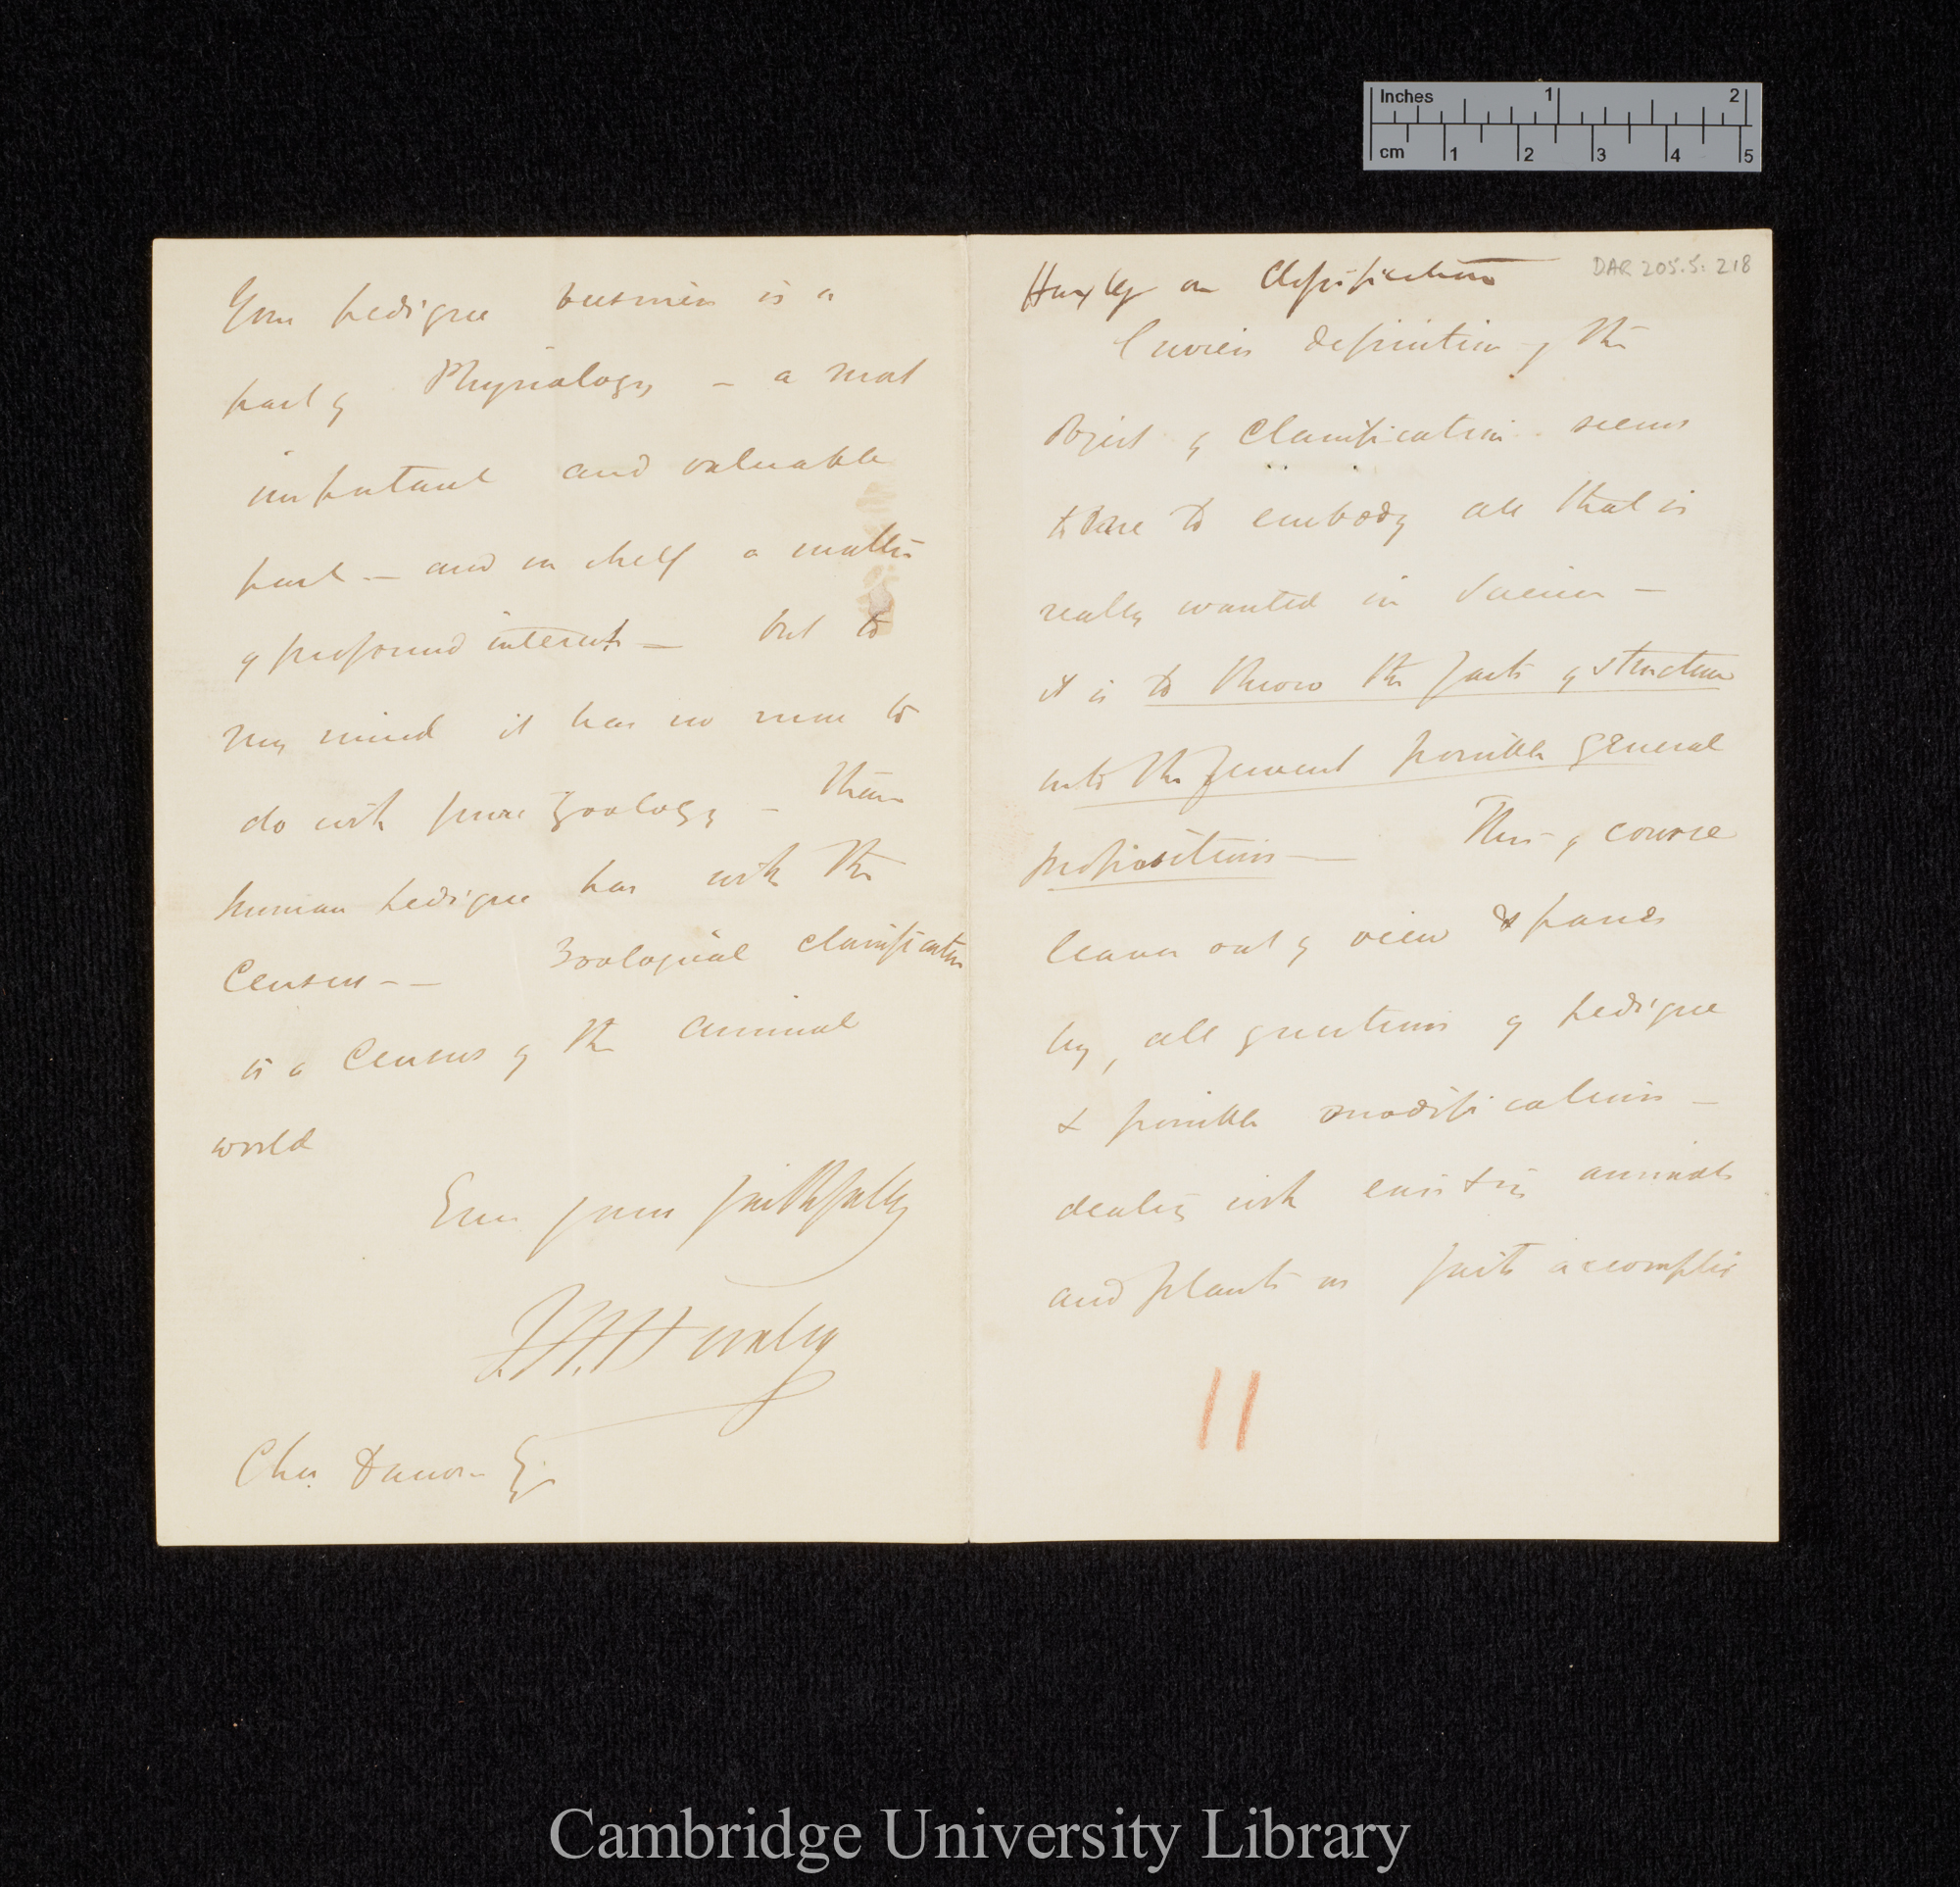 Inches 1 2
cm 1 2 3 4 5
DAR 205.5: 218
Huxley on Classification
Cuviers definition of the
object of Classification seems
to me to embody all that is
really wanted in Science —
it is to throw the facts of structure
into the fewest possible general
propositions — This of course
leaves out of view & passes
by, all questions of pedigree
& possible modifications —
dealing with existing animals
and plants as faits accomplis
11
Your pedigree business is a
part of Physiology — a most
important and valuable
part — and in itself a matter
of profound interest — but to
my mind it has no more to
do with pure Zoology — than
human pedigree has with the
Census — Zoological classification
is a Census of the animal
world
Ever yours faithfully
T.H. Huxley
Chas. Darwin Esq
Cambridge University Library